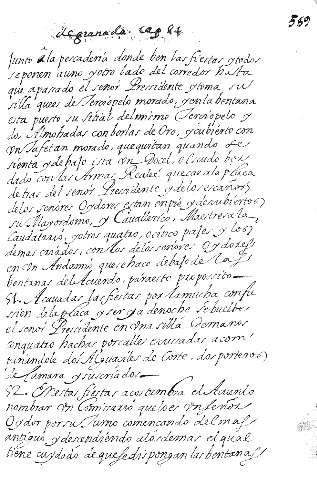 de granada. cap. 84
389
Junto a la pescaderia donde ben las fiestas y todos
se ponen a uno y otro lado del corredor hasta
que a pasado el señor Presidente y toma su
silla que es de Terciopelo morado, y en la bentana
esta puesto su sitial del mismo Terciopelo y
dos Almohadas con borlas de Oro, y cubierto con
Vn tafetan morado, que quitan quando se
sienta y debajo esta Vn Docel, o Escudo bor
dado con las Armas Reales que cae a la plaça
detras del señor Presidente y de los
de los señores Oydores estan en pie y descubiertos
su Mayordomo, y Cavallerico, Maestresala
Caudatario, y otros quatro, o cinco pajes y los
demas criados, con los de los señores Oydores
en Vn Andamio que se hace debajo de las
bentanas del Acuerdo, para este proposito
51. Acavadas las fiestas por la mucha confu
sion de la plaça y ser ya de noche se buelbe
el señor Presidente en Vna silla de manos
con quatro hachas por calles escusadas acom
pañandole dos Alguaciles de Corte, dos porteros
de Camara y sus criados
52. En estas fiestas acostumbra el Acuerdo
nombrar Vn Comisario que es Vn señor
Oydor por su turno començando del mas
antiguo y descendiendo a los demas el qual
tiene cuydado de que se dispongan las bentanas